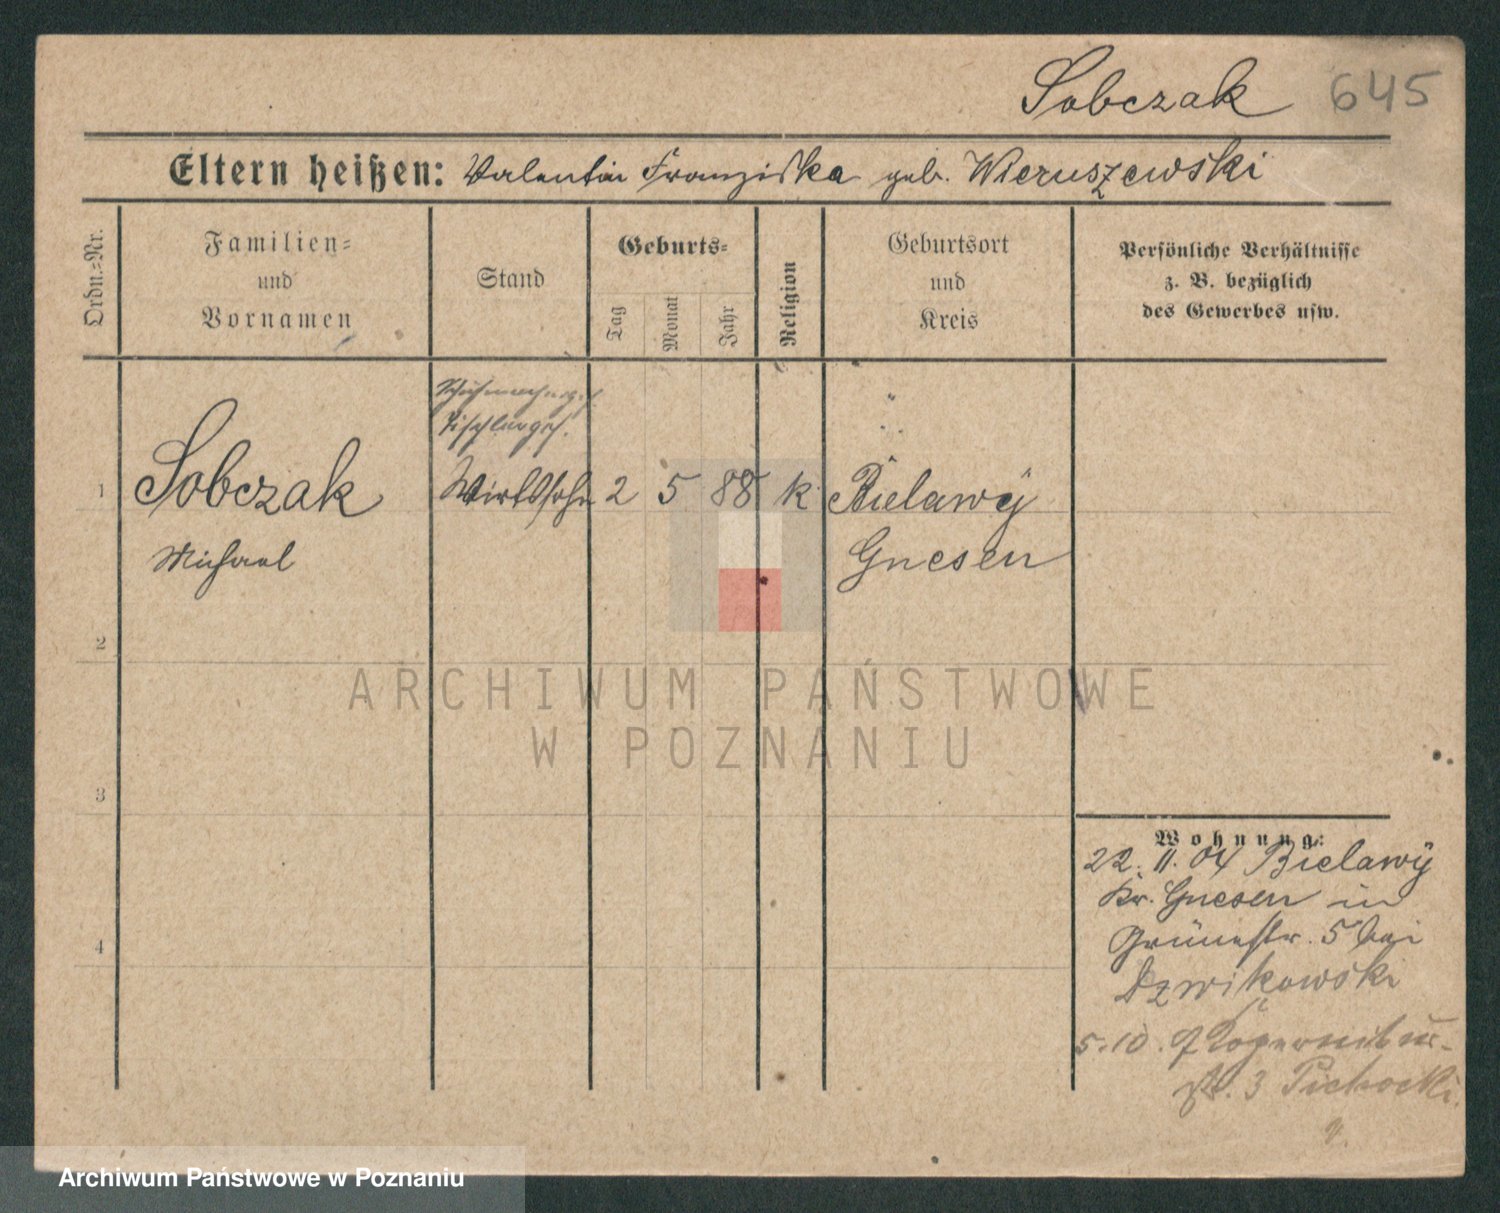 Sobczak 645
Eltern heißen: Valentin Franziska geb. Wieruszewski
Ordn.=Nr.
Familien=
und
Vornamen
Stand
Geburts=
Tag
Monat
Jahr
Religion
Geburtsort
und
Kreis
Persönliche Verhältnisse
z. B. bezüglich
des Gewerbes usw.
Schuhmacherges.
Tischlerges.
1 Sobczak Wirtssohn 2 5 88 k Bielawy
Michael Gnesen
2
3
4
Wohnung:
22. 11. 04 Bielawy
Kr. Gnesen in
Grünestr. 5 bei
Dzwikowski
5.10.
str. 3 Pichocki
ARCHIWUM PAŃSTWOWE
W POZNANIU
Archiwum Państwowe w Poznaniu